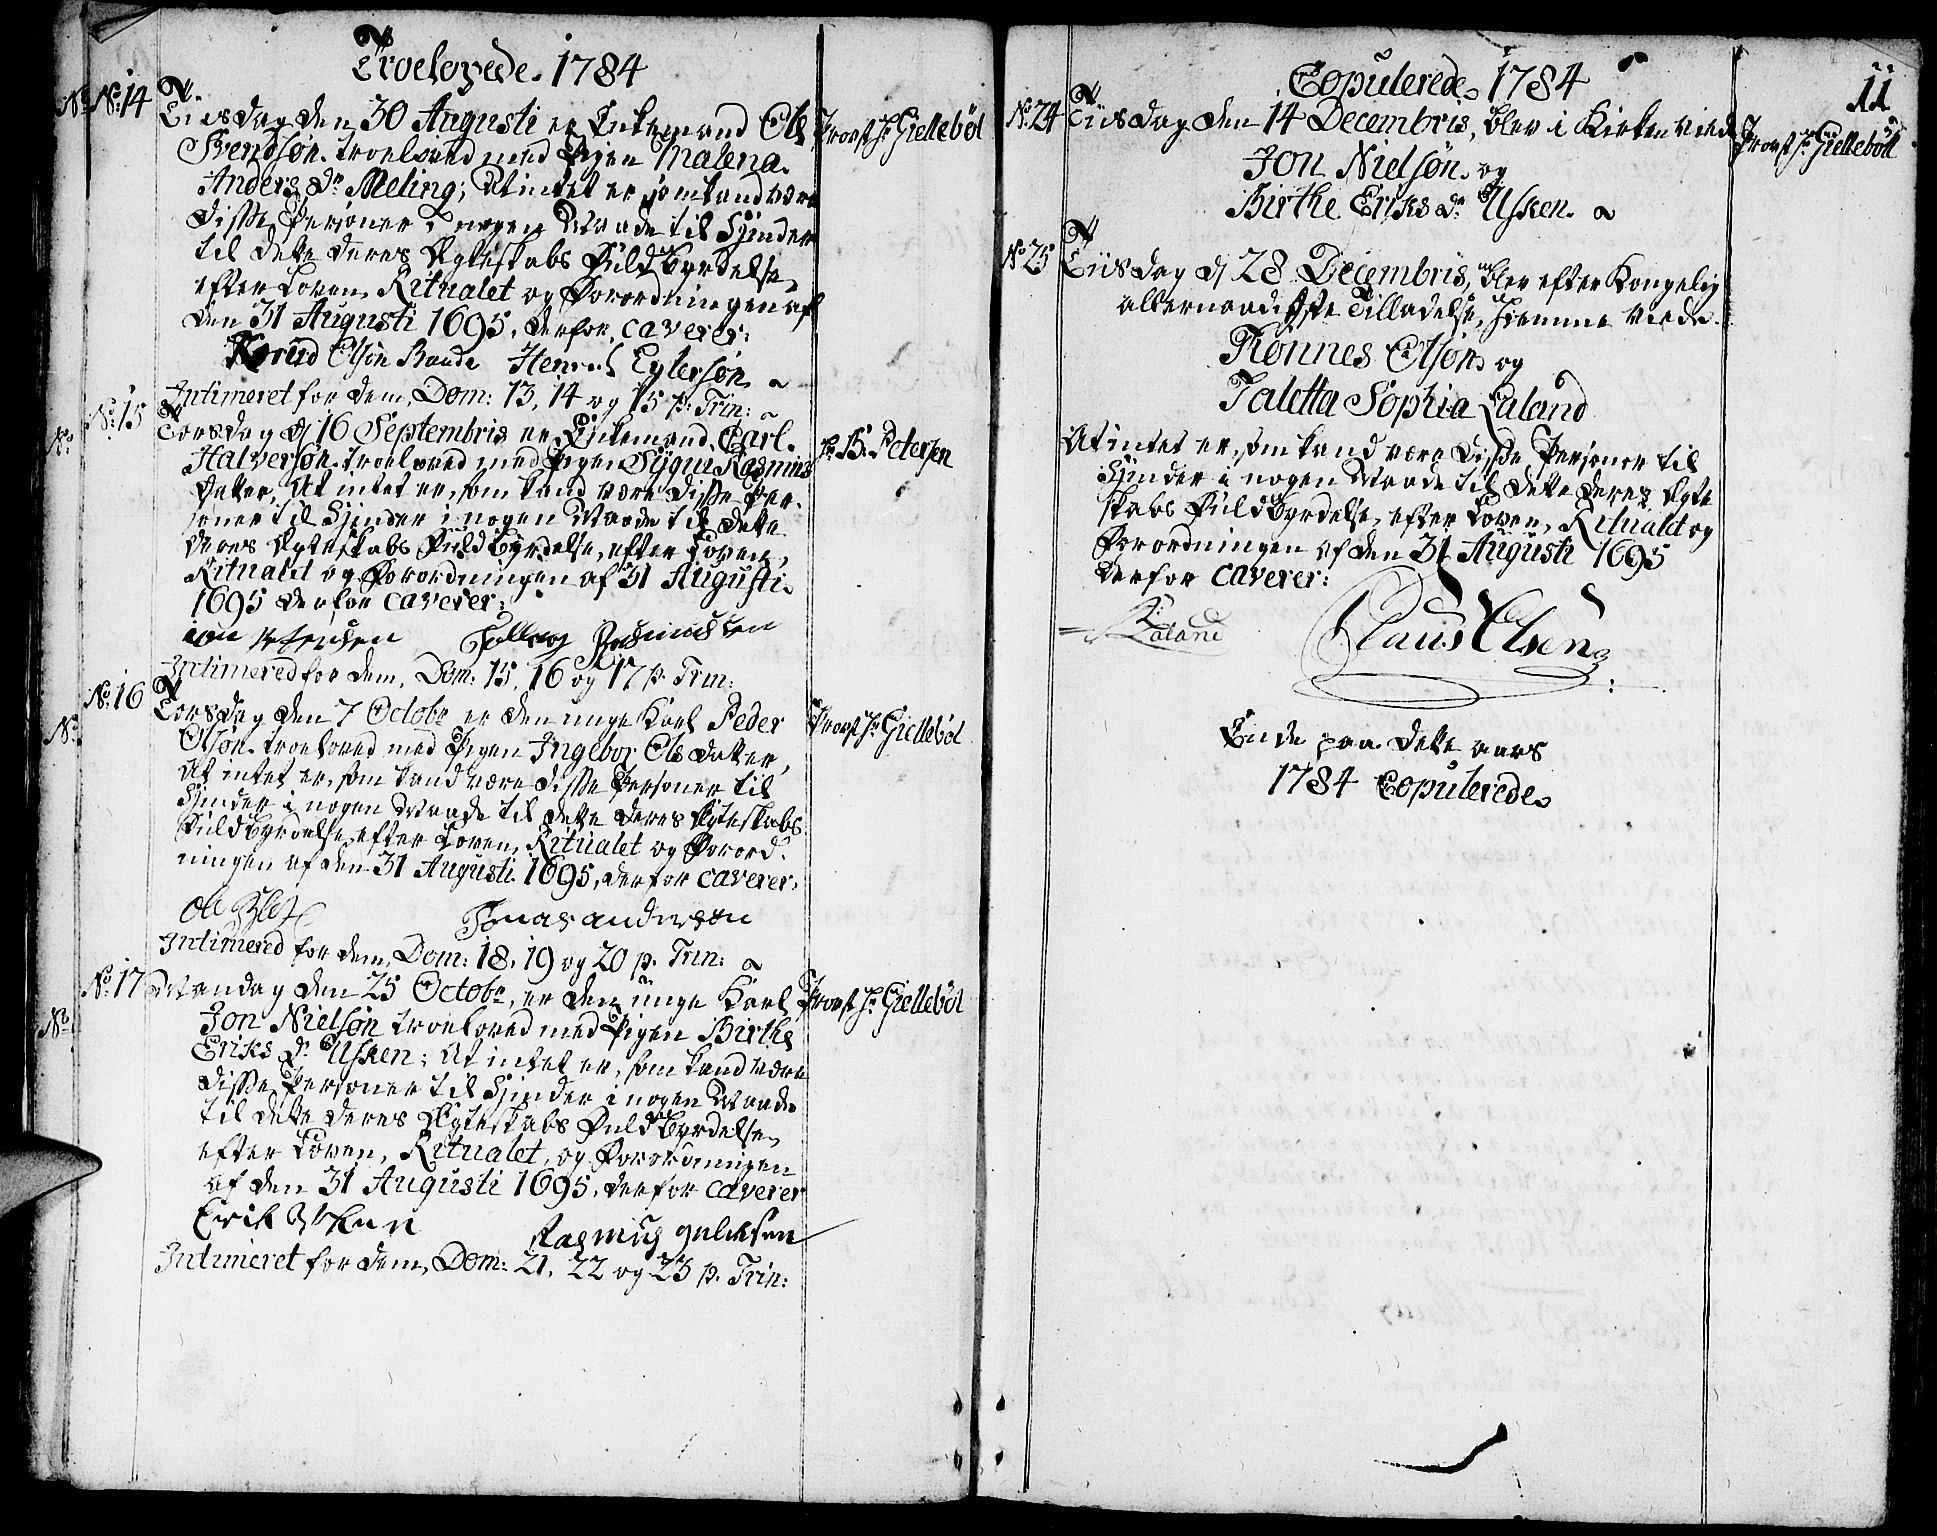 Troelovede. 1784
No: 14 Tiisdag den 30 Augusti er Enkemand Ole Provst Hr Giellebøl
Svendsøn troeloved med Pigen Malena
Anders Dr Meling; At intet er, som kand være
disse Personer i nogen Maade til Hinder
til dette deres Ægteskabs Fuldbyrdelse,
efter Loven, Ritualet og Forordningen af
den 31 Augusti 1695, derfor caverer:
Olsøn Haade Henrich Eylersøn
Intimeret for dem, Dom: 13, 14 og 15 p: Trin:
No: 15 Torsdag d 16 Septembris er Enkemand Carl Hr B: Petersen
Halversøn troeloved med Pigen Sygni Rasmus
Datter, At intet er, som kand være disse Per-
soner til Hinder i nogen Maade til dette
deres Ægteskabs Fuldbyrdelse, efter Loven,
Ritualet og Forordningen af 31 Augusti
1695 derfor caverer:
Jensen Rasmussen
Intimered for dem, Dom: 15, 16 og 17 p. Trin:
No: 16 Torsdag den 7 Octobr er den unge Karl Peder Provst Hr Giellebøl
Olsøn troeloved med Pigen Ingebor Ols Datter,
At intet er, som kand være disse Personer til
Hinder i nogen Maade til dette deres Ægteskabs
Fuldbyrdelse efter Loven, Ritualet og Forord-
ningen af den 31 Augusti 1695, derfor caverer:
Ole Jonas andersen
Intimered for dem, Dom: 18, 19 og 20 p. Trin:
No: 17 Mandag den 25 Octobr, er den unge Karl Provst Hr Giellebøl
Jon Nielsøn troeloved med Pigen Birthe
Eriks Dr Usken; At intet er, som kand være
disse Personer til Hinder i nogen Maade
til dette deres Ægteskabs Fuldbyrdelse
efter Loven, Ritualet, og Forordningen
af den 31 Augusti 1695, derfor caverer
Erik Uskun Rasmus
Intimeret for dem, Dom: 21, 22 og 23 p. Trin:
Copulerede 1784
11
No: 24 Tiisdag den 14 Decembris, blev i Kirken viede Provst Hr Giellebøl
Jon Nielsøn og
Birthe Eriks Dr Usken.
No: 25 Tiisdag d 28 Decembris, blev efter Kongelig
allernaadigste Tilladelse, hiemme viede
Rønnes Olsøn og
Taletta Sophia Laland
At intet er, som kand være disse Personer til
Hinder i nogen Maade til dette deres Ægte
skabs Fuldbyrdelse, efter Loven, Ritualet og
Forordningen af den 31 Augusti 1695
derfor caverer:
Laland Claus Olsen
Ende paa dette aars
1784 Copulerede